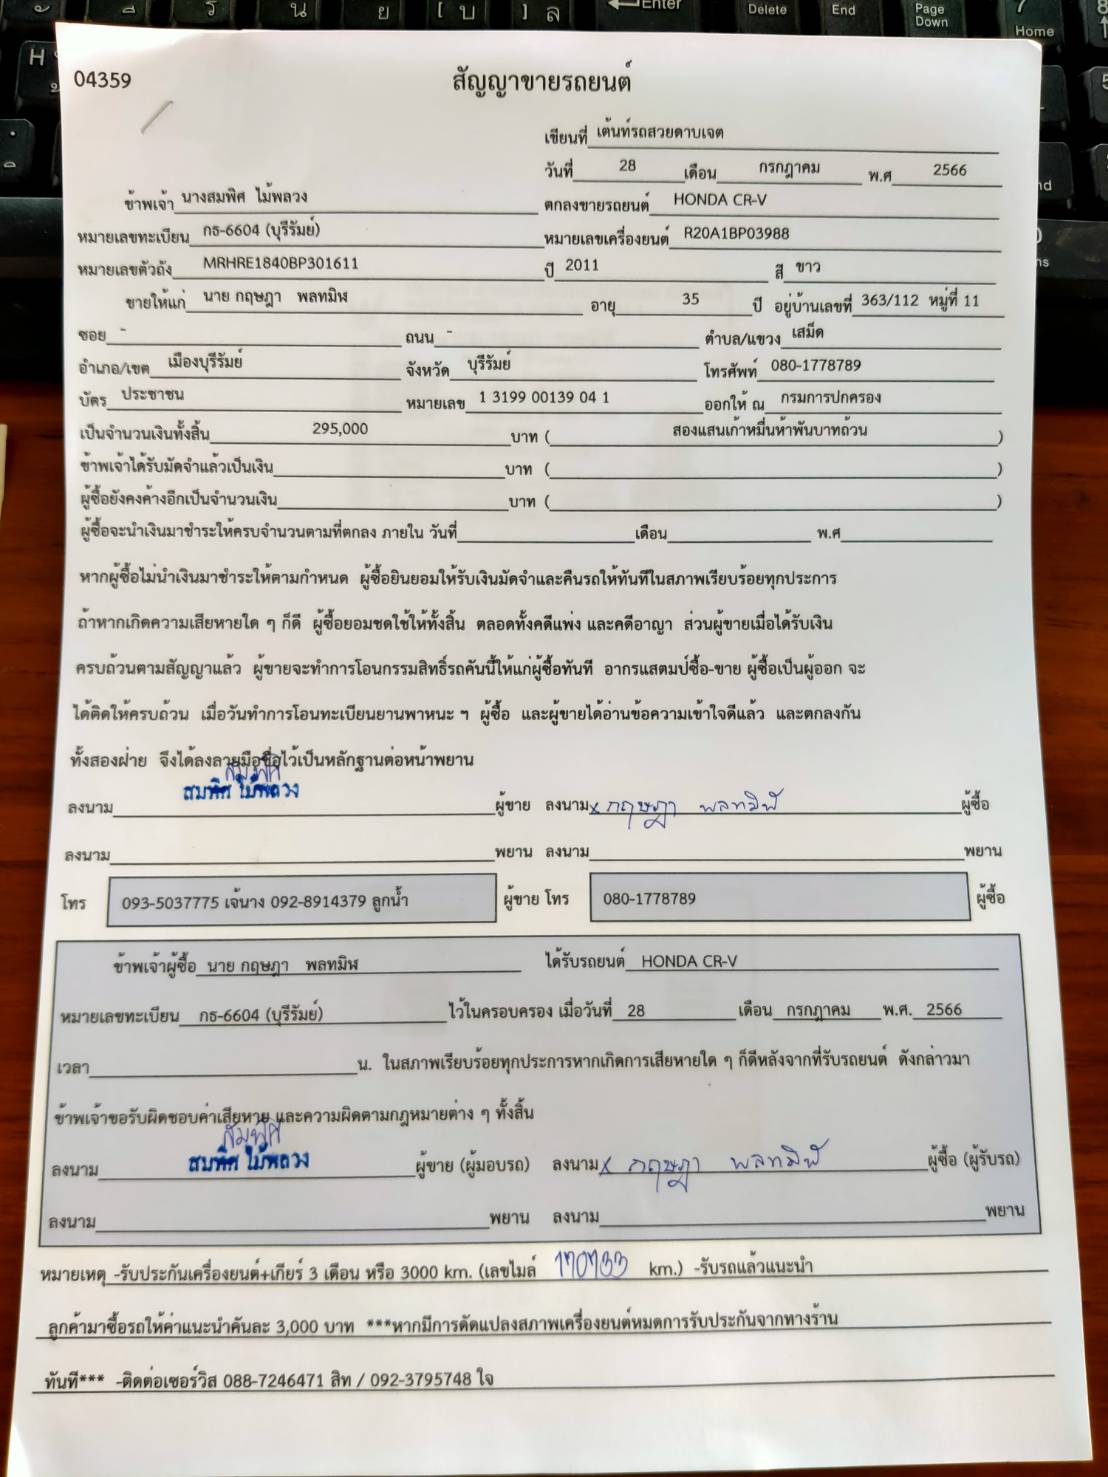 04359
สัญญาขายรถยนต์
เขียนที่ เต้นท์รถสวยดาบเจต
วันที่ 28 เดือน กรกฎาคม พ.ศ 2566
ข้าพเจ้า นางสมพิศ ไม้พลวง ตกลงขายรถยนต์ HONDA CR-V
หมายเลขทะเบียน กธ-6604 (บุรีรัมย์) หมายเลขเครื่องยนต์ R20A1BP03988
หมายเลขตัวถัง MRHRE1840BP301611 ปี 2011 สี ขาว
ขายให้แก่ นาย กฤษฎา พลทมิฬ อายุ 35 ปี อยู่บ้านเลขที่ 363/112 หมู่ที่ 11
ซอย - ถนน - ตำบล/แขวง เสม็ด
อำเภอ/เขต เมืองบุรีรัมย์ จังหวัด บุรีรัมย์ โทรศัพท์ 080-1778789
บัตร ประชาชน หมายเลข 1 3199 00139 04 1 ออกให้ ณ กรมการปกครอง
เป็นจำนวนเงินทั้งสิ้น 295,000 บาท ( สองแสนเก้าหมื่นห้าพันบาทถ้วน )
ข้าพเจ้าได้รับมัดจำแล้วเป็นเงิน บาท ( )
ผู้ซื้อยังคงค้างอีกเป็นจำนวนเงิน บาท ( )
ผู้ซื้อจะนำเงินมาชำระให้ครบจำนวนตามที่ตกลง ภายใน วันที่ เดือน พ.ศ
หากผู้ซื้อไม่นำเงินมาชำระให้ตามกำหนด ผู้ซื้อยินยอมให้รับเงินมัดจำและคืนรถให้ทันทีในสภาพเรียบร้อยทุกประการ
ถ้าหากเกิดความเสียหายใด ๆ ก็ดี ผู้ซื้อยอมชดใช้ให้ทั้งสิ้น ตลอดทั้งคดีแพ่ง และคดีอาญา ส่วนผู้ขายเมื่อได้รับเงิน
ครบถ้วนตามสัญญาแล้ว ผู้ขายจะทำการโอนกรรมสิทธิ์รถคันนี้ให้แก่ผู้ซื้อทันที อากรแสตมป์ซื้อ-ขาย ผู้ซื้อเป็นผู้ออก จะ
ได้ติดให้ครบถ้วน เมื่อวันทำการโอนทะเบียนยานพาหนะ ฯ ผู้ซื้อ และผู้ขายได้อ่านข้อความเข้าใจดีแล้ว และตกลงกัน
ทั้งสองฝ่าย จึงได้ลงลายมือชื่อไว้เป็นหลักฐานต่อหน้าพยาน
สมพิศ
ลงนาม สมพิศ ไม้พลวง ผู้ขาย ลงนาม x กฤษฎา พลทมิฬ ผู้ซื้อ
ลงนาม พยาน ลงนาม พยาน
โทร 093-5037775 เจ้นาง 092-8914379 ลูกน้ำ ผู้ขาย โทร 080-1778789 ผู้ซื้อ
ข้าพเจ้าผู้ซื้อ นาย กฤษฎา พลทมิฬ ได้รับรถยนต์ HONDA CR-V
หมายเลขทะเบียน กธ-6604 (บุรีรัมย์) ไว้ในครอบครอง เมื่อวันที่ 28 เดือน กรกฎาคม พ.ศ. 2566
เวลา น. ในสภาพเรียบร้อยทุกประการหากเกิดการเสียหายใด ๆ ก็ดีหลังจากที่รับรถยนต์ ดังกล่าวมา
ข้าพเจ้าขอรับผิดชอบค่าเสียหาย และความผิดตามกฎหมายต่าง ๆ ทั้งสิ้น
สมพิศ
ลงนาม สมพิศ ไม้พลวง ผู้ขาย (ผู้มอบรถ) ลงนาม x กฤษฎา พลทมิฬ ผู้ซื้อ (ผู้รับรถ)
ลงนาม พยาน ลงนาม พยาน
หมายเหตุ -รับประกันเครื่องยนต์+เกียร์ 3 เดือน หรือ 3000 km. (เลขไมล์ 170733 km.) -รับรถแล้วแนะนำ
ลูกค้ามาซื้อรถให้ค่าแนะนำคันละ 3,000 บาท ***หากมีการดัดแปลงสภาพเครื่องยนต์หมดการรับประกันจากทางร้าน
ทันที*** -ติดต่อเซอร์วิส 088-7246471 สิท / 092-3795748 ใจ
Enter
Delete
End
Page Down
Home